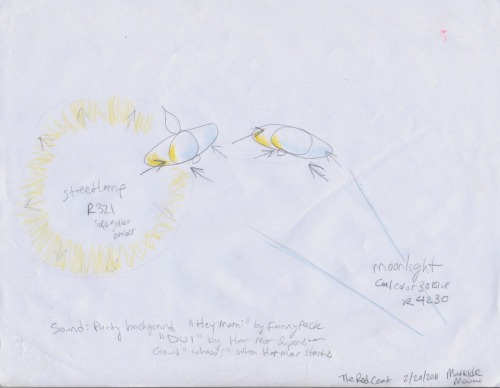 streetlamp
R321
amber
moonlight
Calcolor 30 Blue
R 4230
Sound: Party background "Hey Mami" by Fannypack
"DUI" by Har Mar Superstar
Crowd "whooo!" when Har Mar starts
The Red Coat 2/20/2011 Mathilde